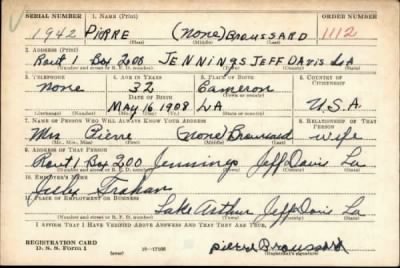 SERIAL NUMBER 1. NAME (Print) ORDER NUMBER
1942 PIERRE (None) BROUSSARD 1112
(First) (Middle) (Last)
2. ADDRESS (Print)
Rout 1 Box 200 JENNINGS JEFF DAVIS LA
(Number and street or R. F. D. number) (Town) (County) (State)
3. TELEPHONE 4. AGE IN YEARS 5. PLACE OF BIRTH 6. COUNTRY OF CITIZENSHIP
None 32 Cameron
DATE OF BIRTH (Town or county)
MAY 16 1908 LA U.S.A.
(Exchange) (Number) (Mo.) (Day) (Yr.) (State or country)
7. NAME OF PERSON WHO WILL ALWAYS KNOW YOUR ADDRESS 8. RELATIONSHIP OF THAT PERSON
Mrs Pierre (None) Broussard Wife
(Mr., Mrs., Miss) (First) (Middle) (Last)
9. ADDRESS OF THAT PERSON
Rout 1 Box 200 Jennings Jeff Davis La
(Number and street or R. F. D. number) (Town) (County) (State)
10. EMPLOYER'S NAME
Jules Trahan
11. PLACE OF EMPLOYMENT OR BUSINESS
Lake Arthur Jeff Davis La
(Number and street or R. F. D. number) (Town) (County) (State)
I AFFIRM THAT I HAVE VERIFIED ABOVE ANSWERS AND THAT THEY ARE TRUE.
REGISTRATION CARD
D. S. S. Form 1 (over) 16—17105 Pierre Broussard
(Registrant's signature)